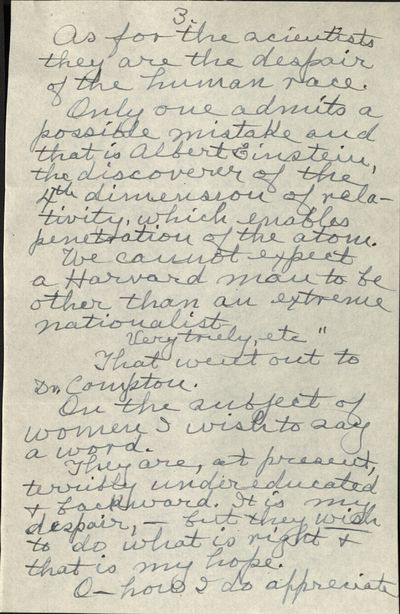 3.
As for the scientists
they are the despair
of the human race.
Only one admits a
possible mistake and
that is Albert Einstein,
the discoverer of the
4th dimension of rela-
tivity, which enables
penetration of the atom.
We cannot expect
a Harvard man to be
other than an extreme
nationalist.
Very truly, etc"
That went out to
Dr. Compton.
On the subject of
women I wish to say
a word.
They are, at present,
terribly undereducated
& backward. It is my
despair, – but they wish
to do what is right &
that is my hope.
O – how I do appreciate